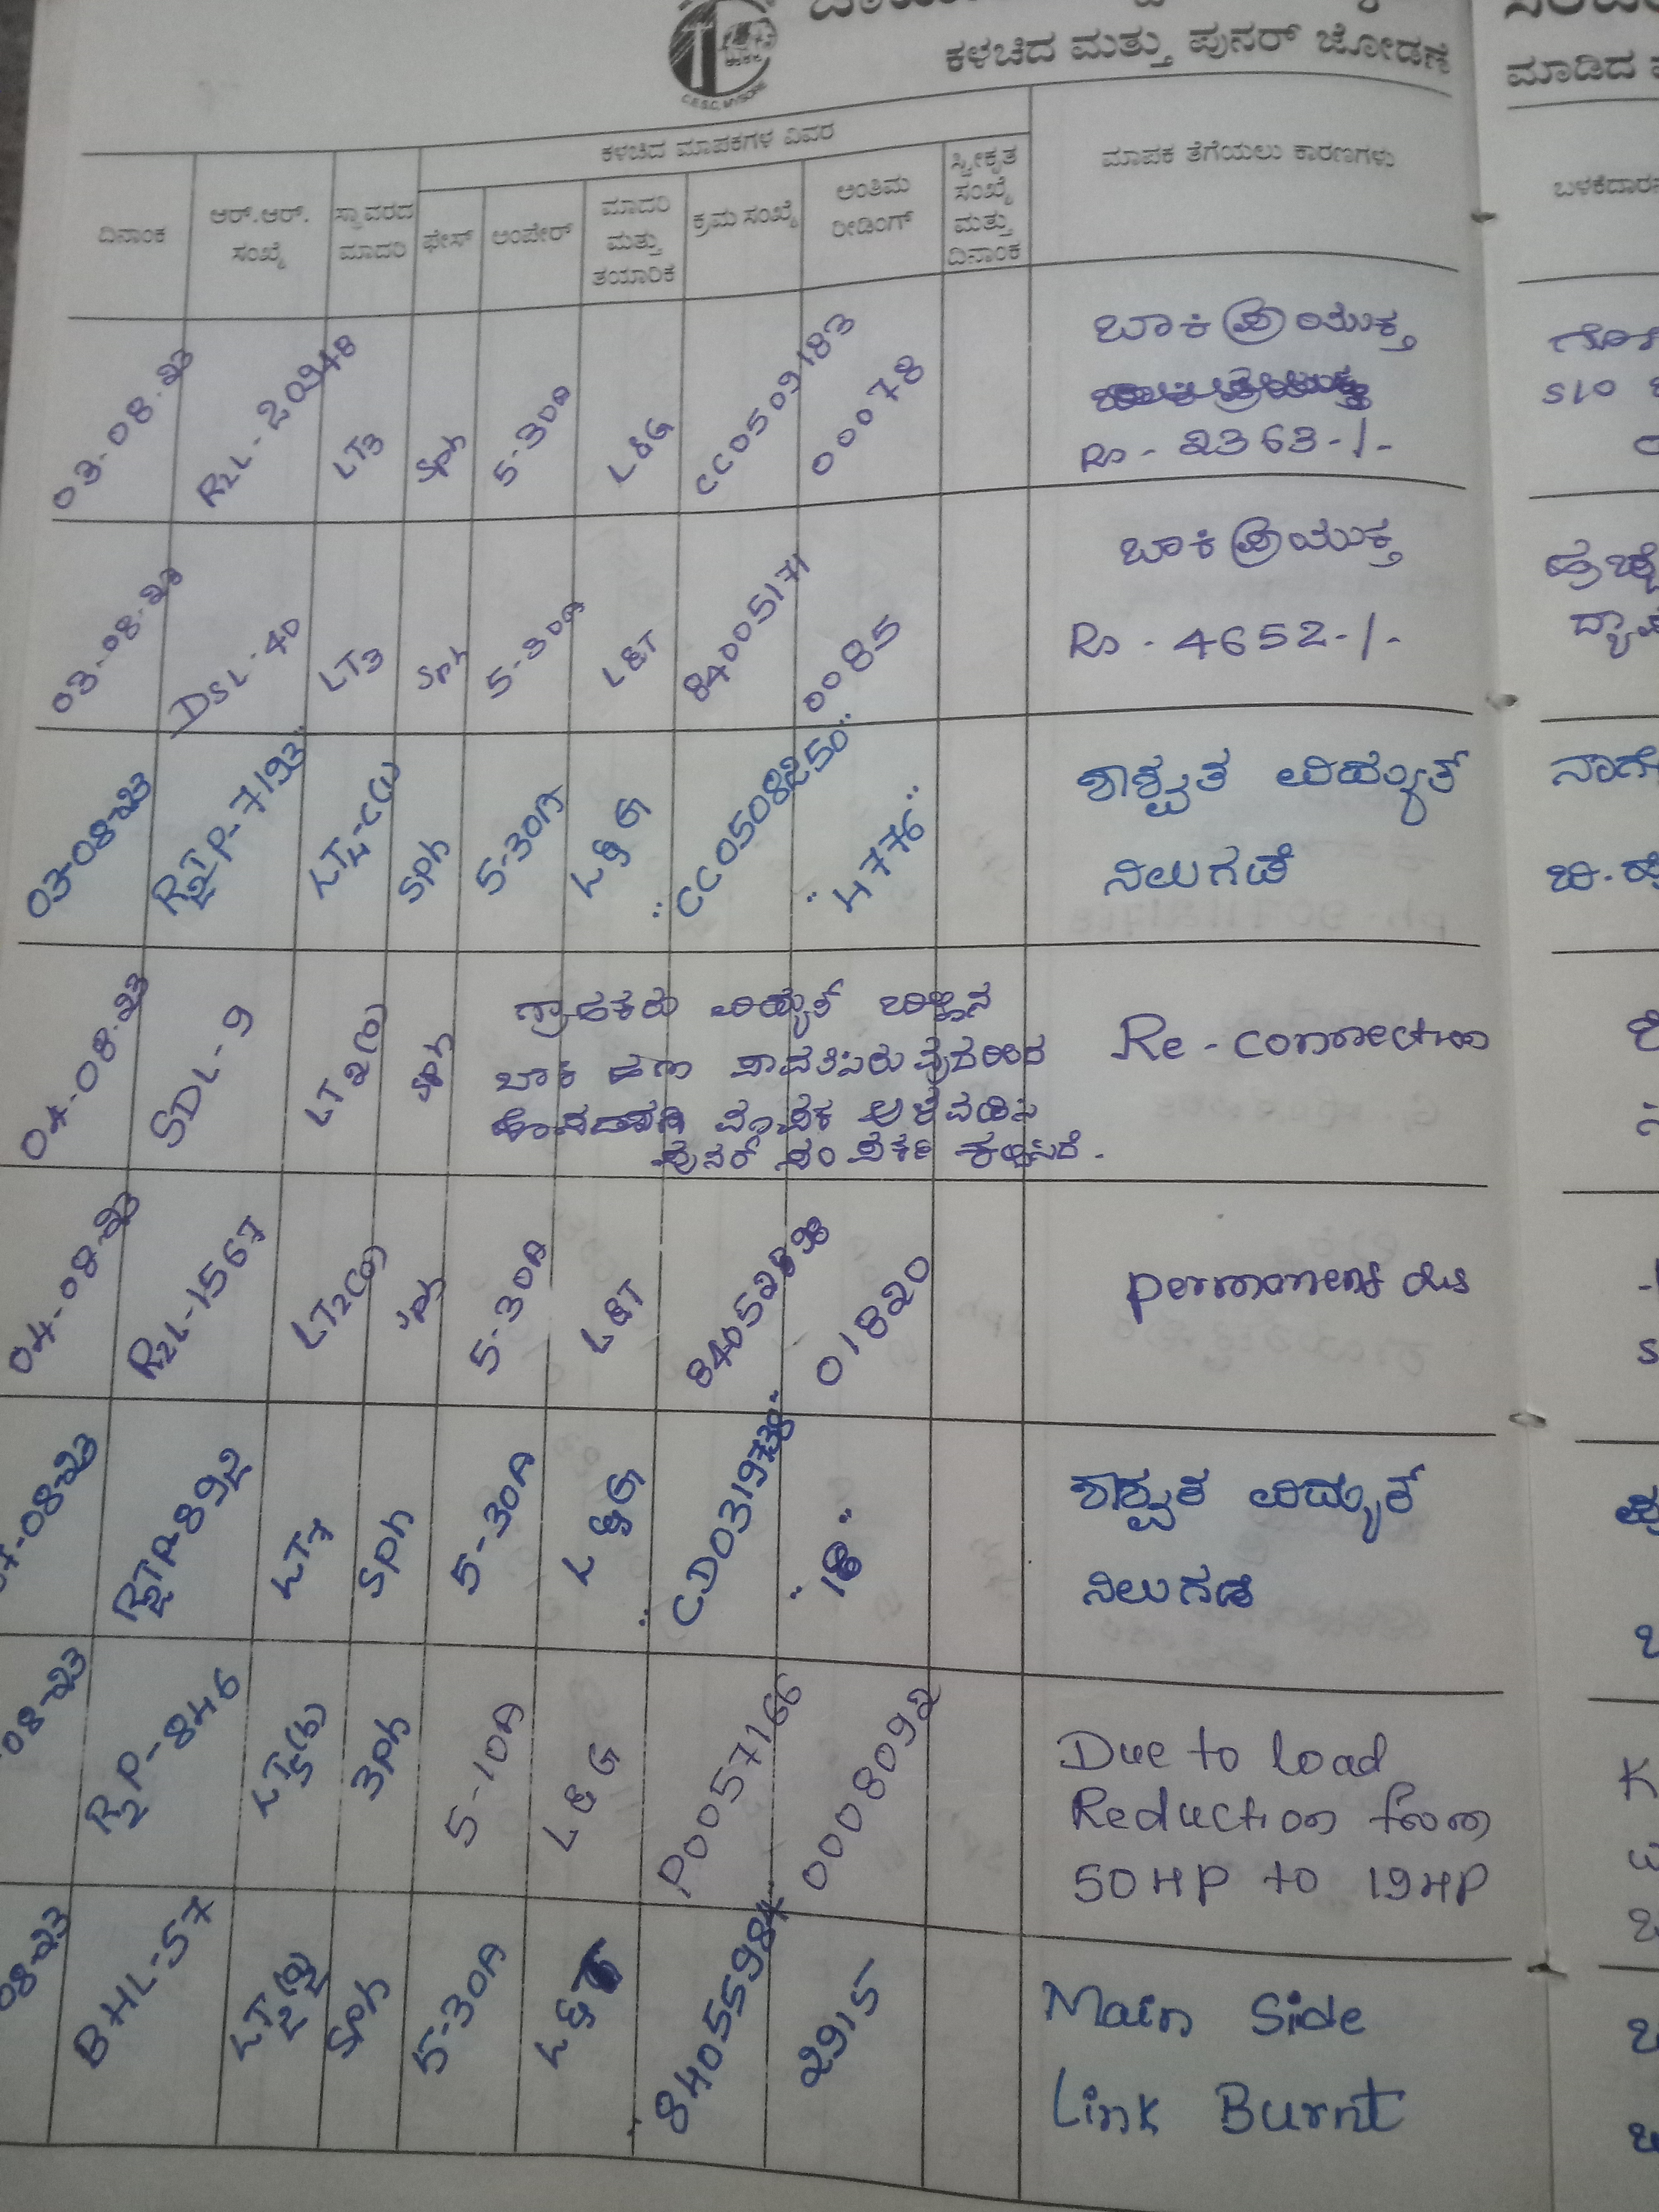 ಕಳಚಿದ ಮತ್ತು ಪುನರ್ ಜೋಡಣೆ
ಮಾಡಿದ
C.E.S.C, MYSORE
ಕಳಚಿದ ಮಾಪಕಗಳ ವಿವರ
ದಿನಾಂಕ
ಆರ್.ಆರ್. ಸಂಖ್ಯೆ
ಸ್ಥಾವರದ ಮಾದರಿ
ಫೇಸ್
ಅಂಪೇರ್
ಮಾದರಿ ಮತ್ತು ತಯಾರಿಕೆ
ಕ್ರಮ ಸಂಖ್ಯೆ
ಅಂತಿಮ ರೀಡಿಂಗ್
ಸ್ವೀಕೃತ ಸಂಖ್ಯೆ ಮತ್ತು ದಿನಾಂಕ
ಮಾಪಕ ತೆಗೆಯಲು ಕಾರಣಗಳು
03-08-23 R2L-20948 LT3 Sph 5-30A L&G CC0509183 00078 ಬಾಕಿ ಪ್ರಯುಕ್ತ
Rs-2363-/-
03-08-23 DSL-40 LT3 Sph 5-30A L&T 84005171 0085 ಬಾಕಿ ಪ್ರಯುಕ್ತ
Rs-4652-/-
03-08-23 R2TP-7193 Sph 5-30A L&G CC0508250 4776 ಶಾಶ್ವತ ವಿದ್ಯುತ್
ನಿಲುಗಡೆ
04-08-23 SDL-9 Sph ಗ್ರಾಹಕರು ವಿದ್ಯುತ್ ಬಿಲ್ಲಿನ Re-connection
ಬಾಕಿ ಹಣ ಪಾವತಿಸಿರುವುದರಿಂದ
ಮಾಪಕ ಅಳವಡಿಸಿ
ಪುನರ್ ಸಂಪರ್ಕ ಕಲ್ಪಿಸಿದೆ.
04-08-23 R2L-1567 Sph 5-30A L&T 01820 permanent dis
08-23 R2TP-892 LT7 Sph 5-30A L&G 18 ಶಾಶ್ವತ ವಿದ್ಯುತ್
ನಿಲುಗಡೆ
08-23 R2P-846 LT5(b) 3ph 5-10A L&G P0057166 0008092 Due to load
Reduction from
50HP to 19HP
08-23 BHL-57 Sph 5-30A L&T 84055984 2915 Main Side
Link Burnt